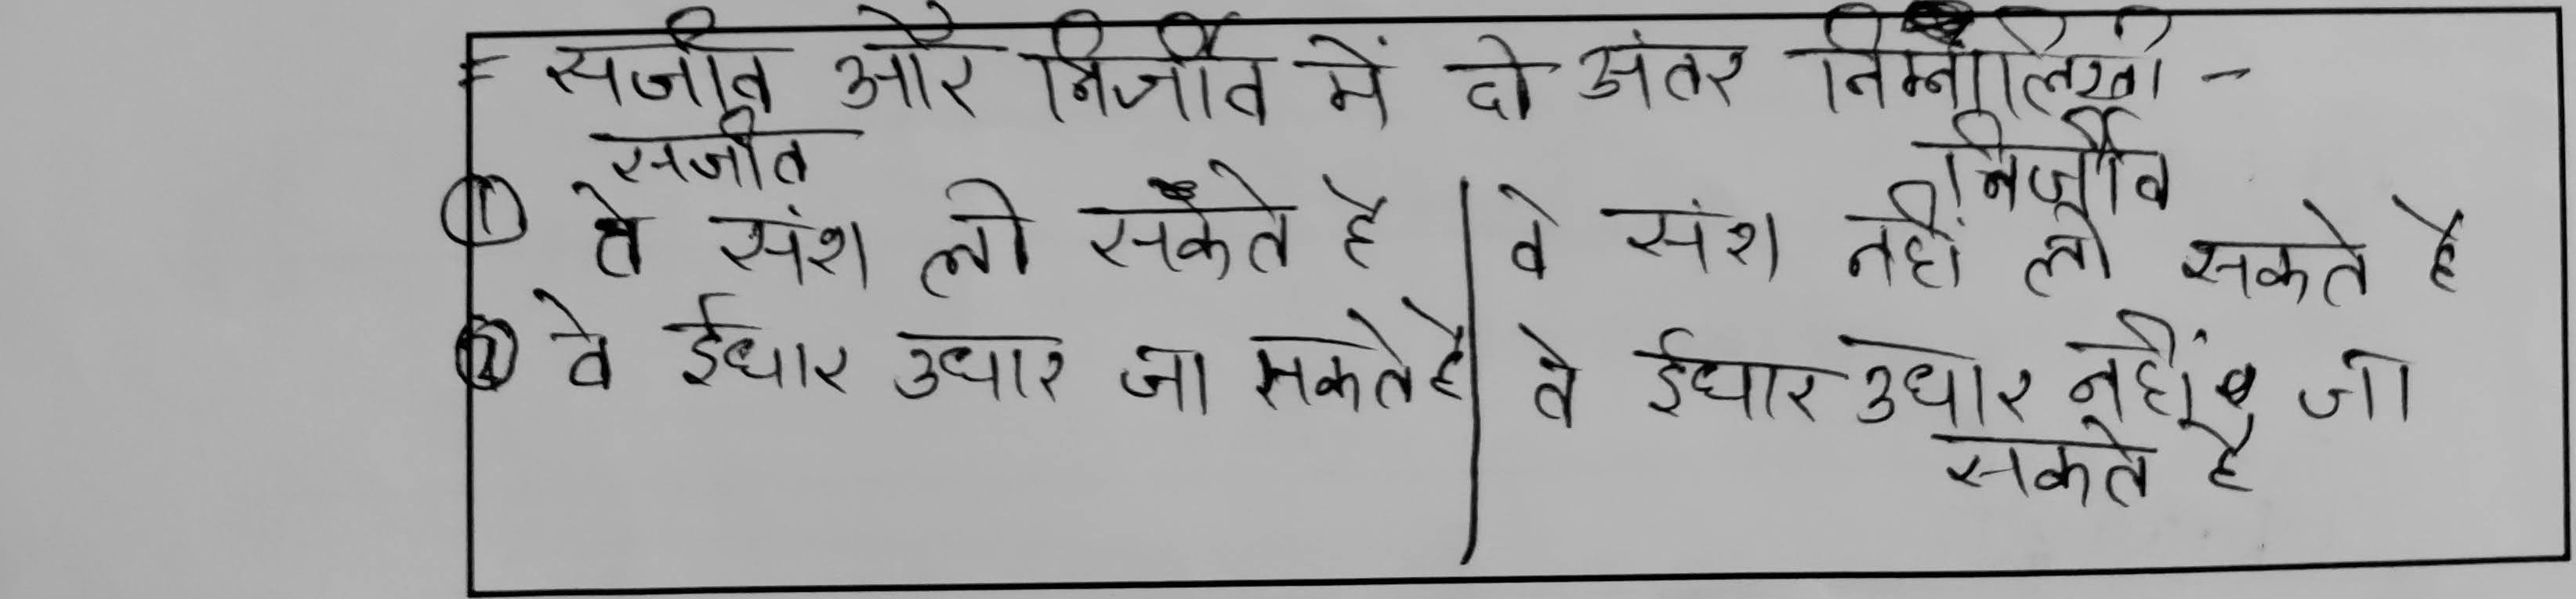 = सजीव और निर्जीव में दो अंतर निम्नलिखी -
सजीव निर्जीव
① वे संश ली सकते है | वे संश नहीं ली सकते है
② वे ईधार उधार जा सकते है | वे ईधार उधार नहीं जा
सकते है